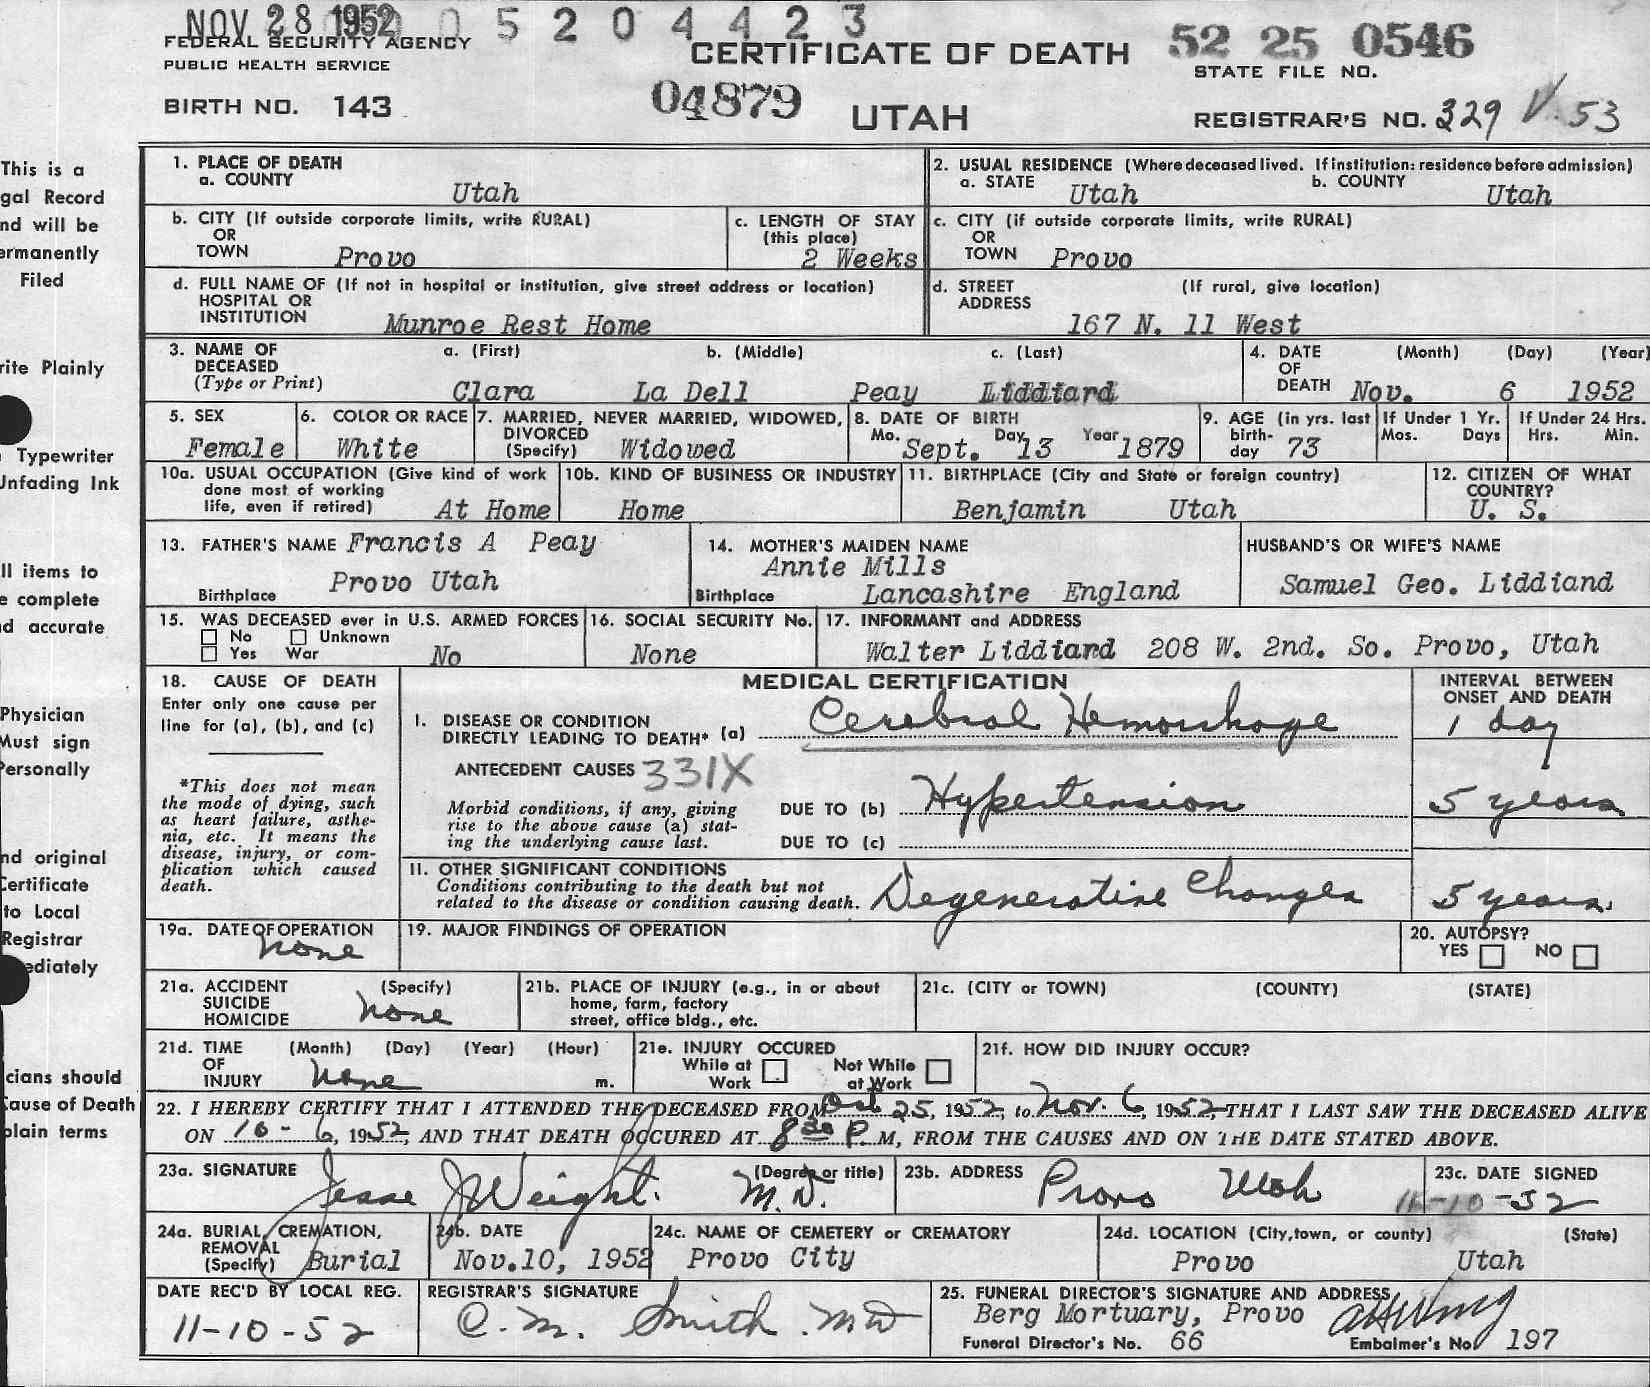 NOV 28 1952 0 5 2 0 4 4 2 3
FEDERAL SECURITY AGENCY
PUBLIC HEALTH SERVICE
CERTIFICATE OF DEATH
52 25 0546
STATE FILE NO.
BIRTH NO. 143
04879
UTAH
REGISTRAR'S NO. 329 V. 53
This is a
gal Record
nd will be
ermanently
Filed
rite Plainly
Typewriter
Unfading Ink
ll items to
e complete
nd accurate
Physician
Must sign
Personally
nd original
Certificate
to Local
Registrar
ediately
cians should
Cause of Death
plain terms
1. PLACE OF DEATH
a. COUNTY Utah
2. USUAL RESIDENCE (Where deceased lived. If institution: residence before admission)
a. STATE Utah b. COUNTY Utah
b. CITY (If outside corporate limits, write RURAL)
OR
TOWN Provo
c. LENGTH OF STAY
(this place)
2 Weeks
c. CITY (if outside corporate limits, write RURAL)
OR
TOWN Provo
d. FULL NAME OF (If not in hospital or institution, give street address or location)
HOSPITAL OR
INSTITUTION Munroe Rest Home
d. STREET (If rural, give location)
ADDRESS
167 N. 11 West
3. NAME OF a. (First) b. (Middle) c. (Last)
DECEASED
(Type or Print) Clara La Dell Peay Liddiard
4. DATE (Month) (Day) (Year)
OF
DEATH Nov. 6 1952
5. SEX
Female
6. COLOR OR RACE
White
7. MARRIED, NEVER MARRIED, WIDOWED,
DIVORCED
(Specify) Widowed
8. DATE OF BIRTH
Mo. Day Year
Sept. 13 1879
9. AGE (in yrs. last
birth-
day 73
If Under 1 Yr.
Mos. Days
If Under 24 Hrs.
Hrs. Min.
10a. USUAL OCCUPATION (Give kind of work
done most of working
life, even if retired) At Home
10b. KIND OF BUSINESS OR INDUSTRY
Home
11. BIRTHPLACE (City and State or foreign country)
Benjamin Utah
12. CITIZEN OF WHAT
COUNTRY?
U. S.
13. FATHER'S NAME Francis A Peay
Provo Utah
Birthplace
14. MOTHER'S MAIDEN NAME
Annie Mills
Birthplace Lancashire England
HUSBAND'S OR WIFE'S NAME
Samuel Geo. Liddiand
15. WAS DECEASED ever in U.S. ARMED FORCES
No Unknown
Yes War No
16. SOCIAL SECURITY No.
None
17. INFORMANT and ADDRESS
Walter Liddiard 208 W. 2nd. So. Provo, Utah
18. CAUSE OF DEATH
Enter only one cause per
line for (a), (b), and (c)
*This does not mean
the mode of dying, such
as heart failure, asthe-
nia, etc. It means the
disease, injury, or com-
plication which caused
death.
MEDICAL CERTIFICATION
INTERVAL BETWEEN
ONSET AND DEATH
I. DISEASE OR CONDITION
DIRECTLY LEADING TO DEATH* (a) Cerebral Hemorrhage 1 day
ANTECEDENT CAUSES 331X
Morbid conditions, if any, giving
rise to the above cause (a) stat-
ing the underlying cause last.
DUE TO (b) Hypertension 5 years
DUE TO (c)
II. OTHER SIGNIFICANT CONDITIONS
Conditions contributing to the death but not
related to the disease or condition causing death. Degenerative Changes 5 years.
19a. DATE OF OPERATION
None
19. MAJOR FINDINGS OF OPERATION
20. AUTOPSY?
YES NO
21a. ACCIDENT (Specify)
SUICIDE
HOMICIDE None
21b. PLACE OF INJURY (e.g., in or about
home, farm, factory
street, office bldg., etc.
21c. (CITY or TOWN) (COUNTY) (STATE)
21d. TIME (Month) (Day) (Year) (Hour)
OF
INJURY None m.
21e. INJURY OCCURED
While at Not While
Work at Work
21f. HOW DID INJURY OCCUR?
22. I HEREBY CERTIFY THAT I ATTENDED THE DECEASED FROM Oct 25, 1952, to Nov. 6, 1952, THAT I LAST SAW THE DECEASED ALIVE
ON 10-6, 1952, AND THAT DEATH OCCURED AT 8 30 P. M, FROM THE CAUSES AND ON THE DATE STATED ABOVE.
23a. SIGNATURE (Degree or title)
Jesse J Weight. M.D.
23b. ADDRESS Provo Utah
23c. DATE SIGNED
11-10-52
24a. BURIAL, CREMATION,
REMOVAL
(Specify) Burial
24b. DATE
Nov.10, 1952
24c. NAME OF CEMETERY or CREMATORY
Provo City
24d. LOCATION (City, town, or county) (State)
Provo Utah
DATE REC'D BY LOCAL REG.
11-10-52
REGISTRAR'S SIGNATURE
C. M. Smith. MD
25. FUNERAL DIRECTOR'S SIGNATURE AND ADDRESS
Berg Mortuary, Provo
Funeral Director's No. 66 Embalmer's No. 197